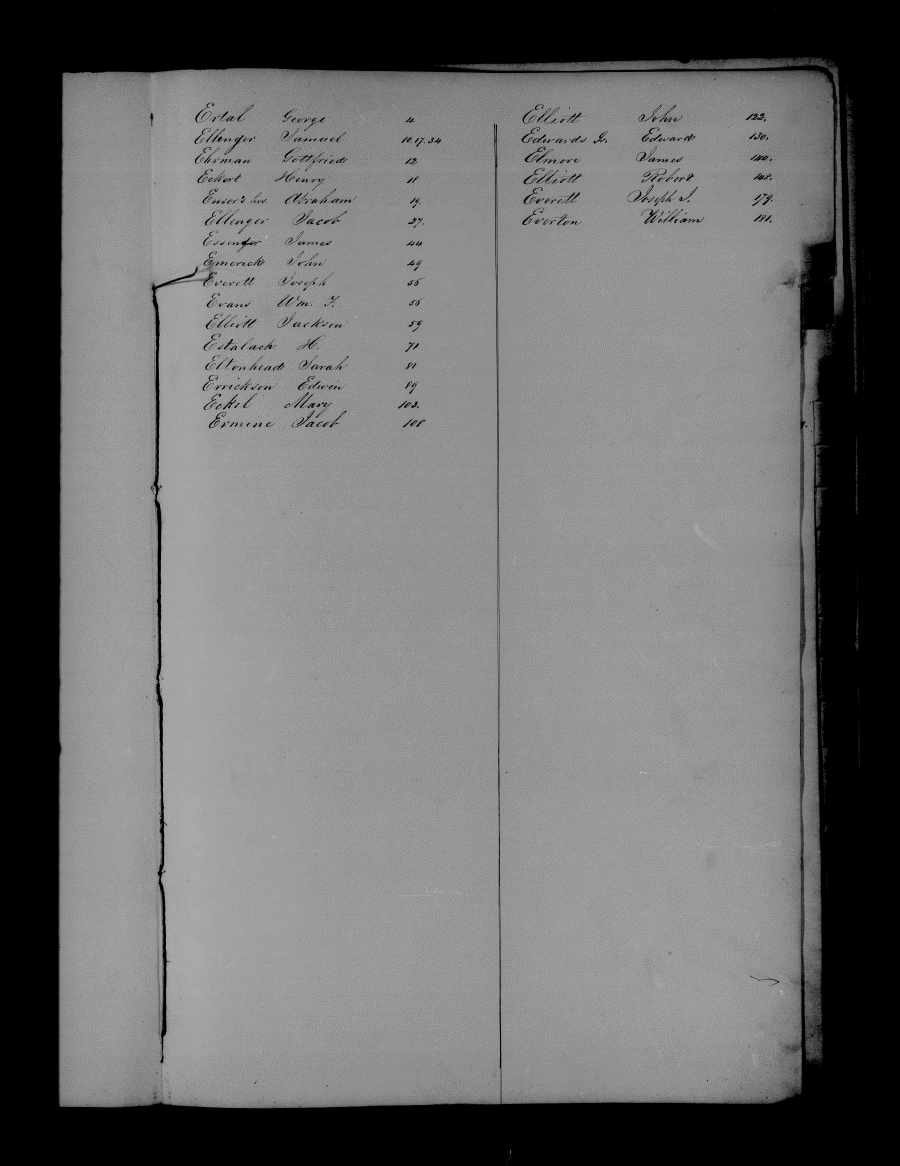 Ertal George 4
Ellenger Samuel 10.17.34
Ehrman Gottfried 12
Eckert Henry 18
Ensor's hrs. Abraham 19.
Ellenger Jacob 27.
Essender James 44
Emerick John 49
Everett Joseph 55
Evans Wm. T. 56
Elliott Jackson 59
Estalack H. 71
Eltonhead Sarah 81
Errickson Edwin 89
Eckel Mary 103.
Ermine Jacob 108
Elliott John 122.
Edwards Jr. Edward 130.
Elmore James 140.
Elliott Robert 148.
Everett Joseph J. 179.
Everton William 181.